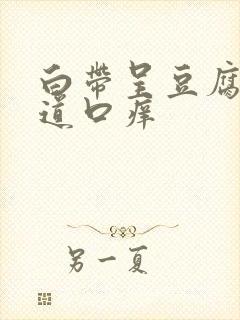 白带呈豆腐
道口痒
另一夏